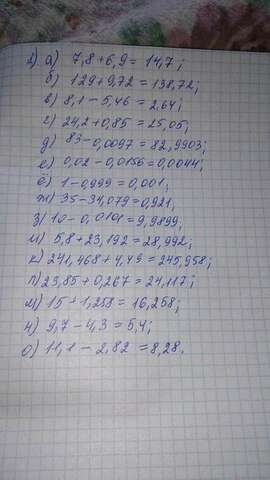 2) а) 7,8+6,9 = 14,7;
б) 129+9,72 = 138,72;
в) 8,1-5,46 = 2,64;
г) 24,2+0,85 = 25,05;
д) 83-0,0097 = 82,9903;
е) 0,02-0,0156=0,0044;
ё) 1-0,999=0,001;
ж) 35-34,079=0,921;
з) 10-0,0101=9,9899;
и) 5,8+23,192=28,992;
к) 241,468+4,49=245,958;
л) 23,85+0,267=24,117;
м) 15+1,258=16,258;
н) 9,7-4,3=5,4;
о) 11,1-2,82=8,28.